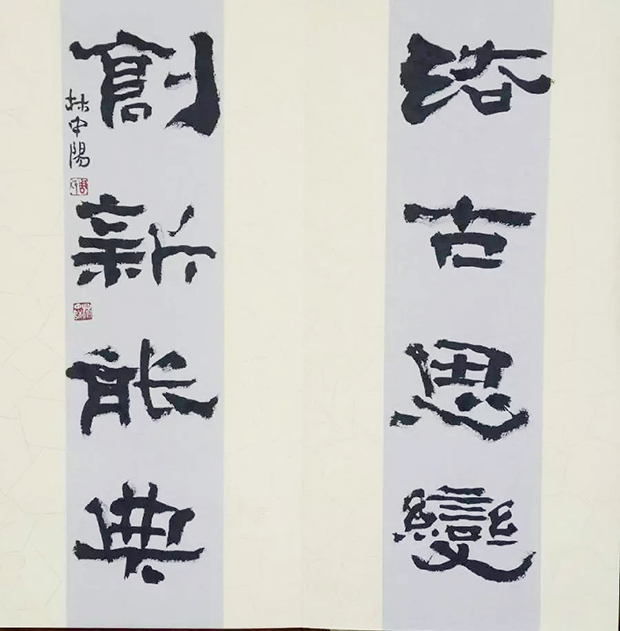 古思變
創新能典
林中陽